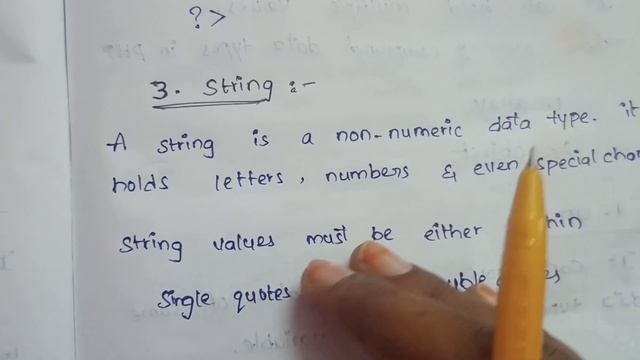 ?>
3. String :-
A string is a non-numeric data type. it
holds letters, numbers & even special
String values must be either
Single quotes